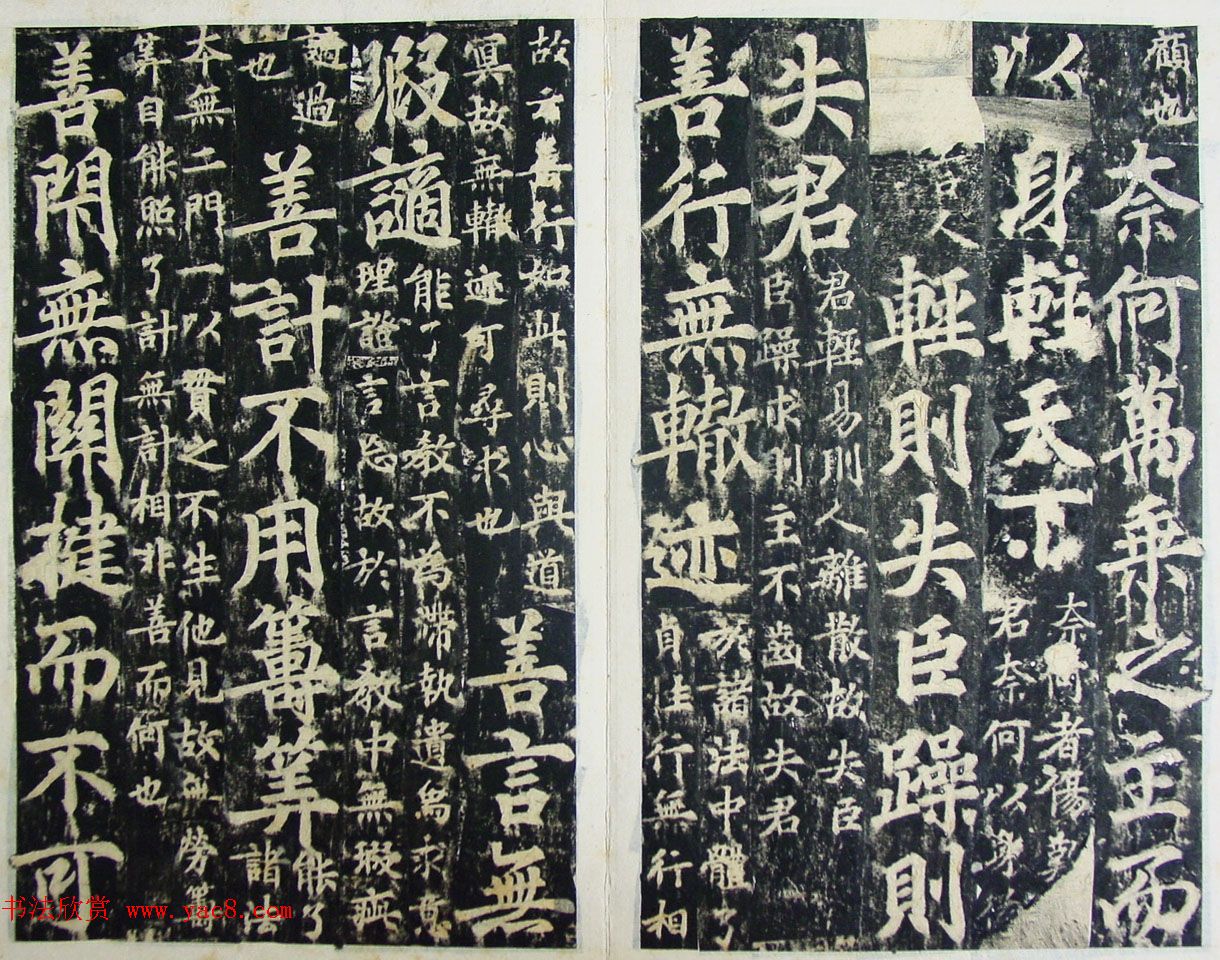 顧也
奈何萬乘之主而
以身輕天下
奈何者傷歎
君奈何以身
言人
輕則失臣躁則
失君
君輕易則人離散故失臣
臣躁求則主不齒故失君
善行無轍迹
於諸法中體了
貞性行無行相
故云善行如此則心與道
冥故無轍迹可尋求也
善言無
瑕讁
能了言教不為滯執遺象求意
理證言忘故於言教中無瑕疵
讁過
也
善計不用籌筭
能了
諸法
本無二門一以貫之不生他見故無勞籌
筭自能照了計無計相非善而何也
善閇無關楗而不可
书法欣赏 www.yac8.com